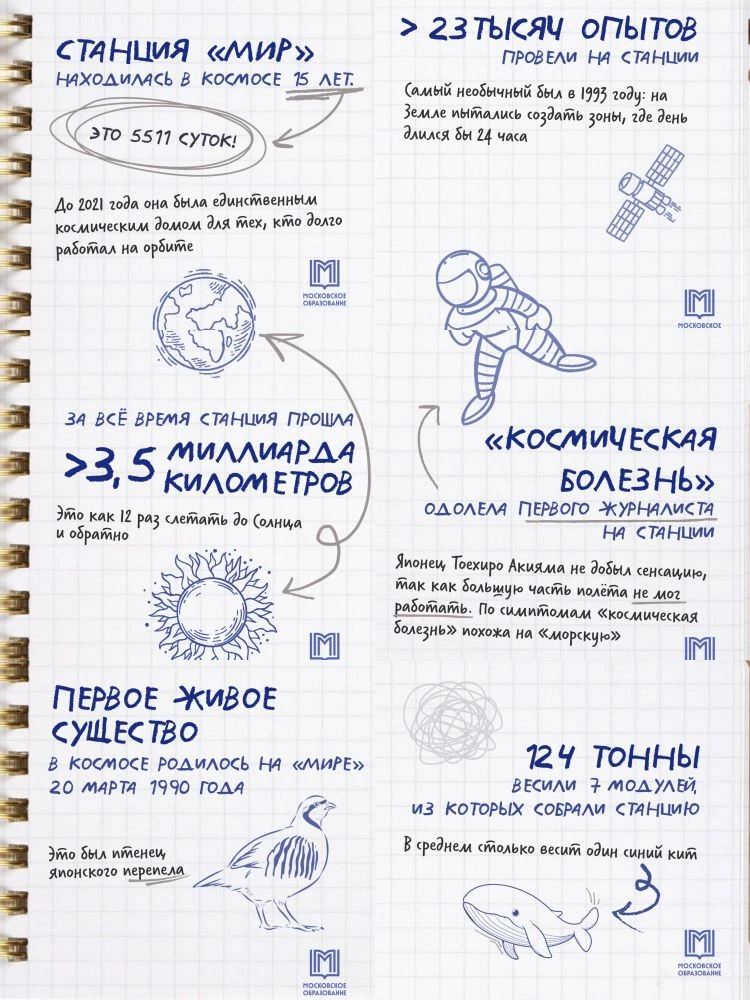 СТАНЦИЯ «МИР»
НАХОДИЛАСЬ В КОСМОСЕ 15 ЛЕТ.
ЭТО 5511 СУТОК!
До 2021 года она была единственным
космическим домом для тех, кто долго
работал на орбите
МОСКОВСКОЕ
ОБРАЗОВАНИЕ
> 23 ТЫСЯЧ ОПЫТОВ
ПРОВЕЛИ НА СТАНЦИИ
Самый необычный был в 1993 году: на
Земле пытались создать зоны, где день
длился бы 24 часа
МОСКОВСКОЕ
ЗА ВСЁ ВРЕМЯ СТАНЦИЯ ПРОШЛА
>3,5 МИЛЛИАРДА
КИЛОМЕТРОВ
Это как 12 раз слетать до Солнца
и обратно
«КОСМИЧЕСКАЯ
БОЛЕЗНЬ»
ОДОЛЕЛА ПЕРВОГО ЖУРНАЛИСТА
НА СТАНЦИИ
Японец Тоехиро Акияма не добыл сенсацию,
так как большую часть полёта не мог
работать. По симптомам «космическая
болезнь» похожа на «морскую»
ПЕРВОЕ ЖИВОЕ
СУЩЕСТВО
В КОСМОСЕ РОДИЛОСЬ НА «МИРЕ»
20 МАРТА 1990 ГОДА
Это был птенец
японского перепела
МОСКОВСКОЕ
ОБРАЗОВАНИЕ
124 ТОННЫ
ВЕСИЛИ 7 МОДУЛЕЙ,
ИЗ КОТОРЫХ СОБРАЛИ СТАНЦИЮ
В среднем столько весит один синий кит
МОСКОВСКОЕ
ОБРАЗОВАНИЕ